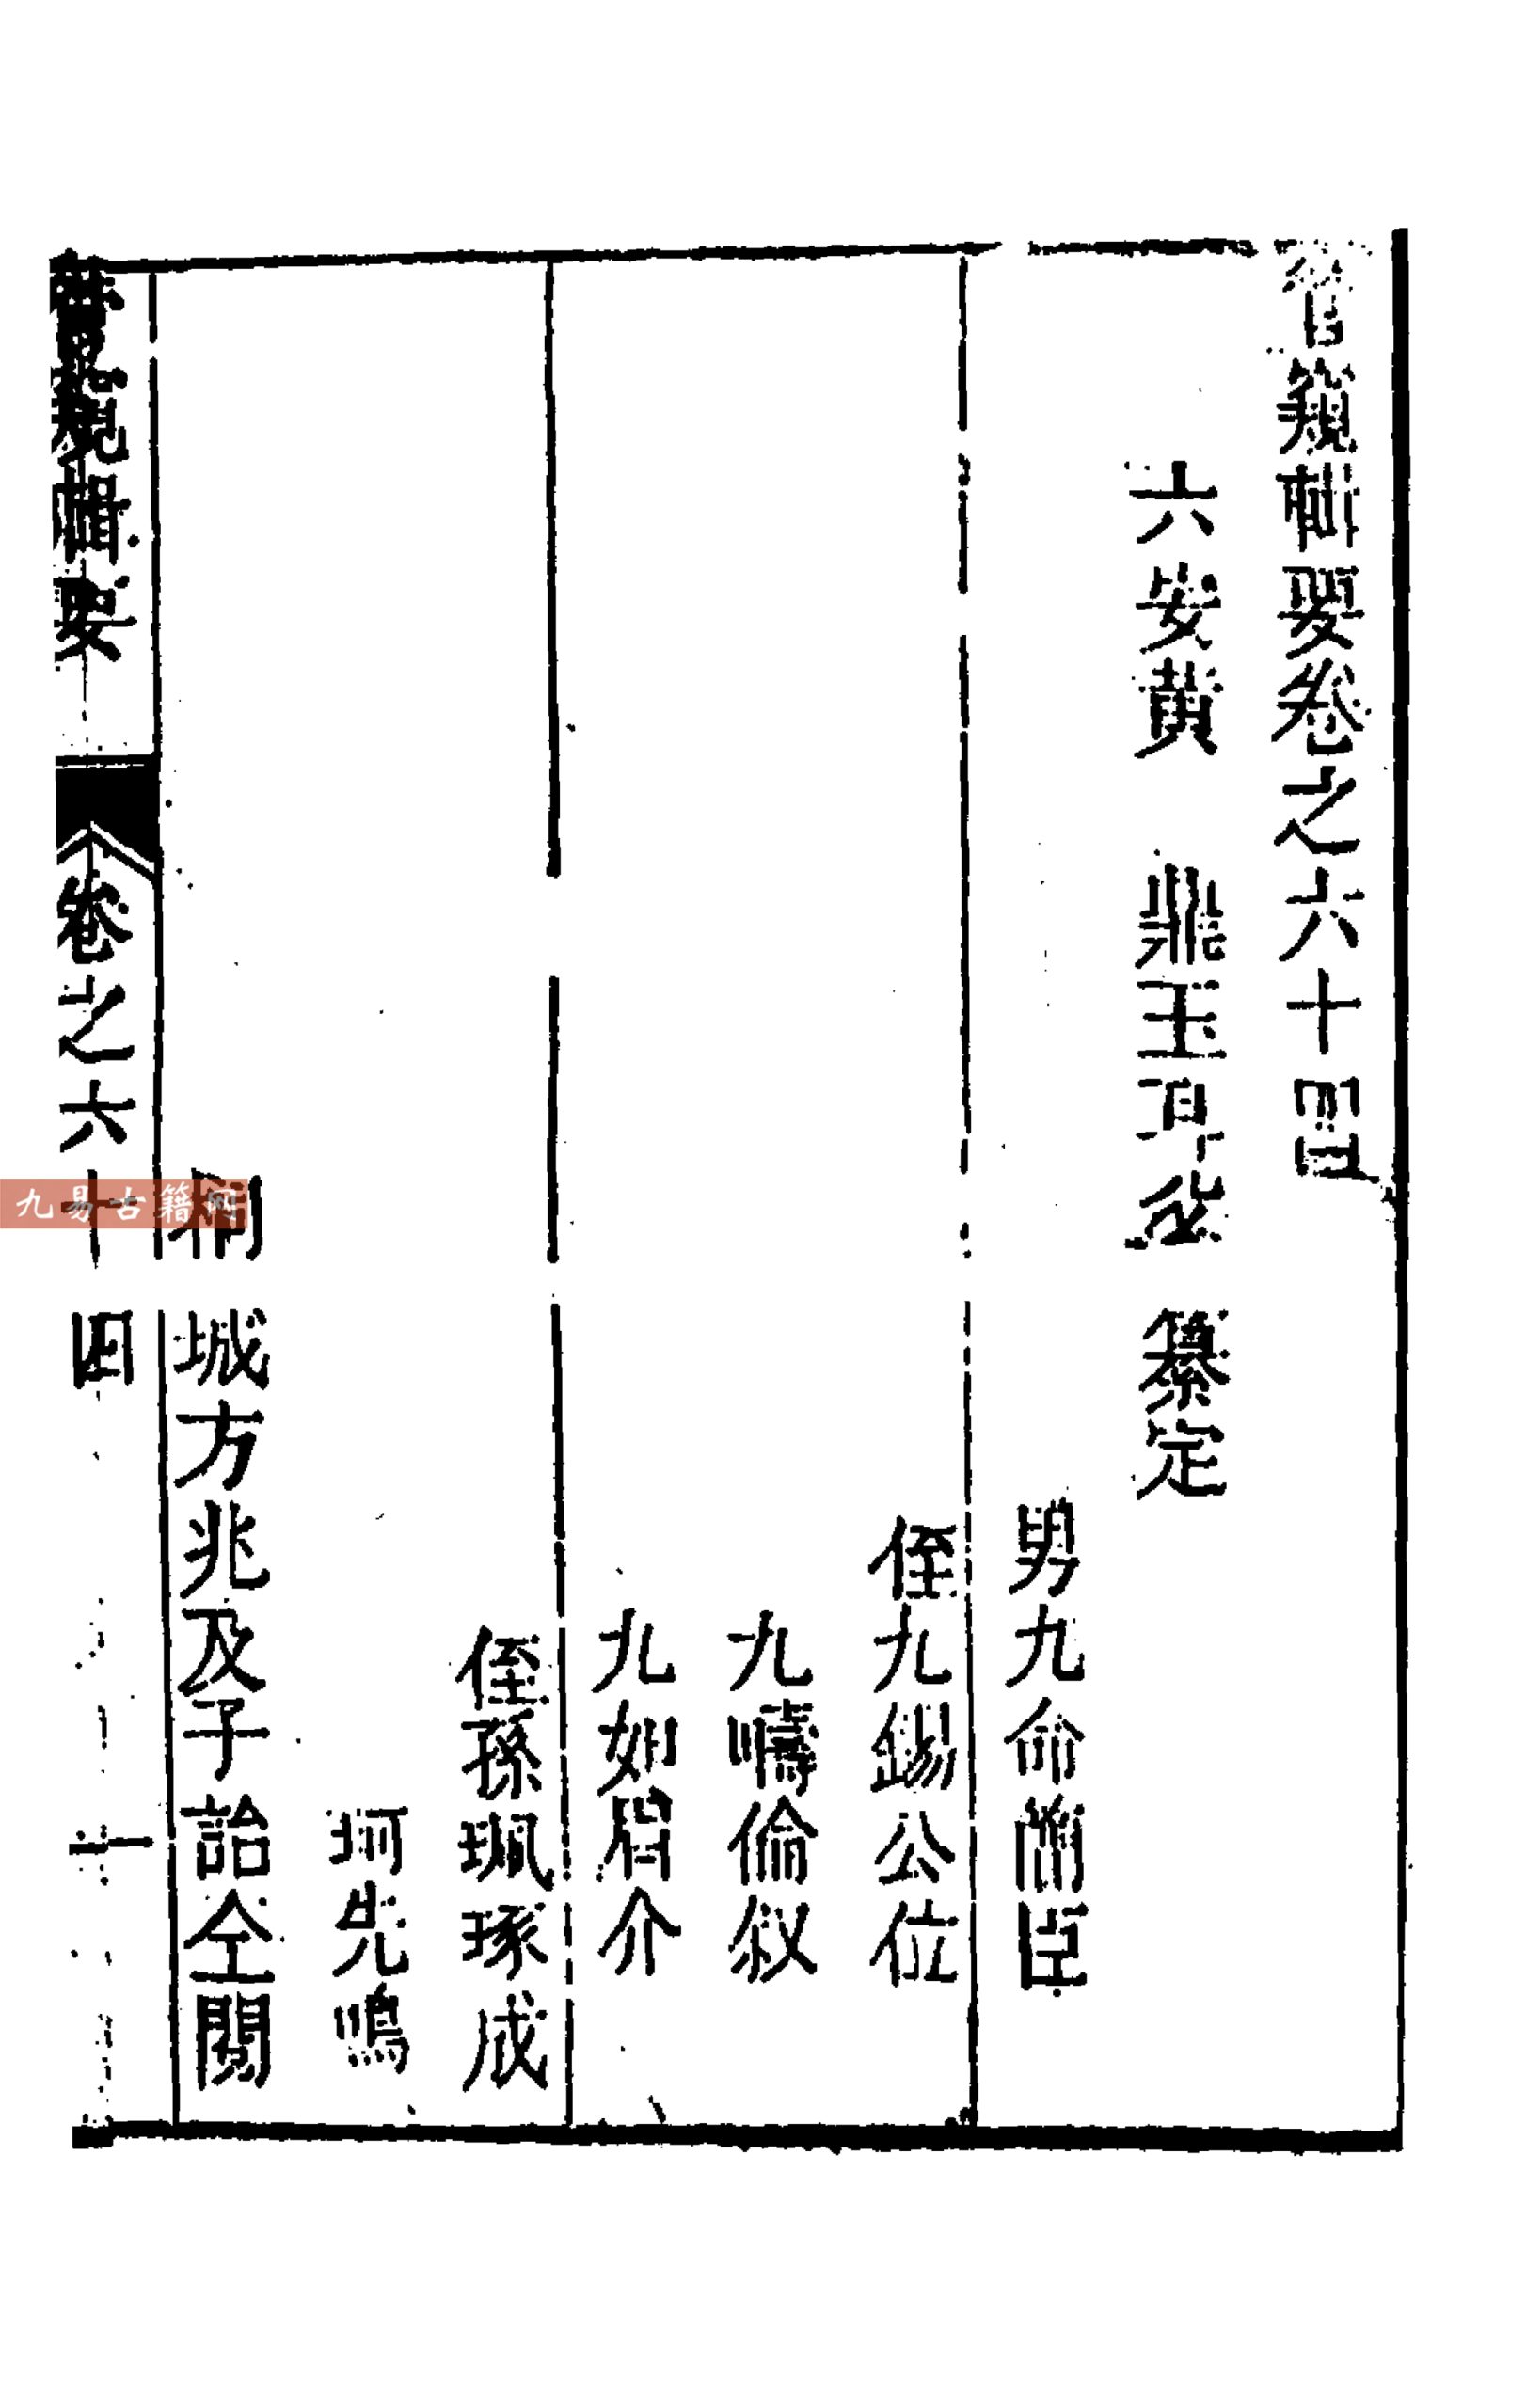 管窺輯要卷之六十四
六安黃　鼎玉耳父　纂定
男九命爾臣
侄九錫公位
九疇倫叙
九如眉介
侄孫珮琢成
珂先鳴
桐城方兆及子詒仝閱
管窺輯要　卷之六十四　一
九易古籍网